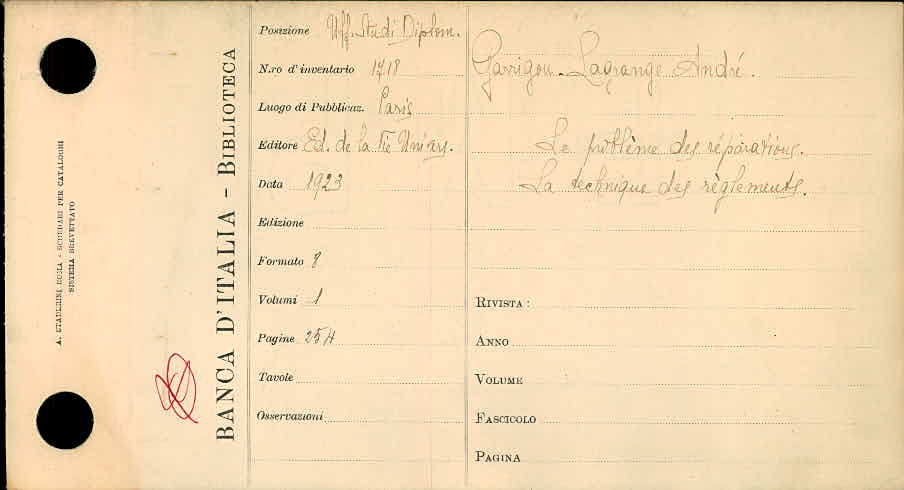 A. STADERINI ROMA - SCHEDARI PER CATALOGHI
SISTEMA BREVETTATO
BANCA D'ITALIA - BIBLIOTECA
Posizione Uff. Studi Diplom.
N.ro d'inventario 1718
Luogo di Pubblicaz. Paris
Editore Ed. de la Vie Univers.
Data 1923
Edizione
Formato 8
Volumi 1
Pagine 254
Tavole
Osservazioni
Garrigou-Lagrange André.
Le problème des réparations.
La technique des règlements.
RIVISTA :
ANNO
VOLUME
FASCICOLO
PAGINA